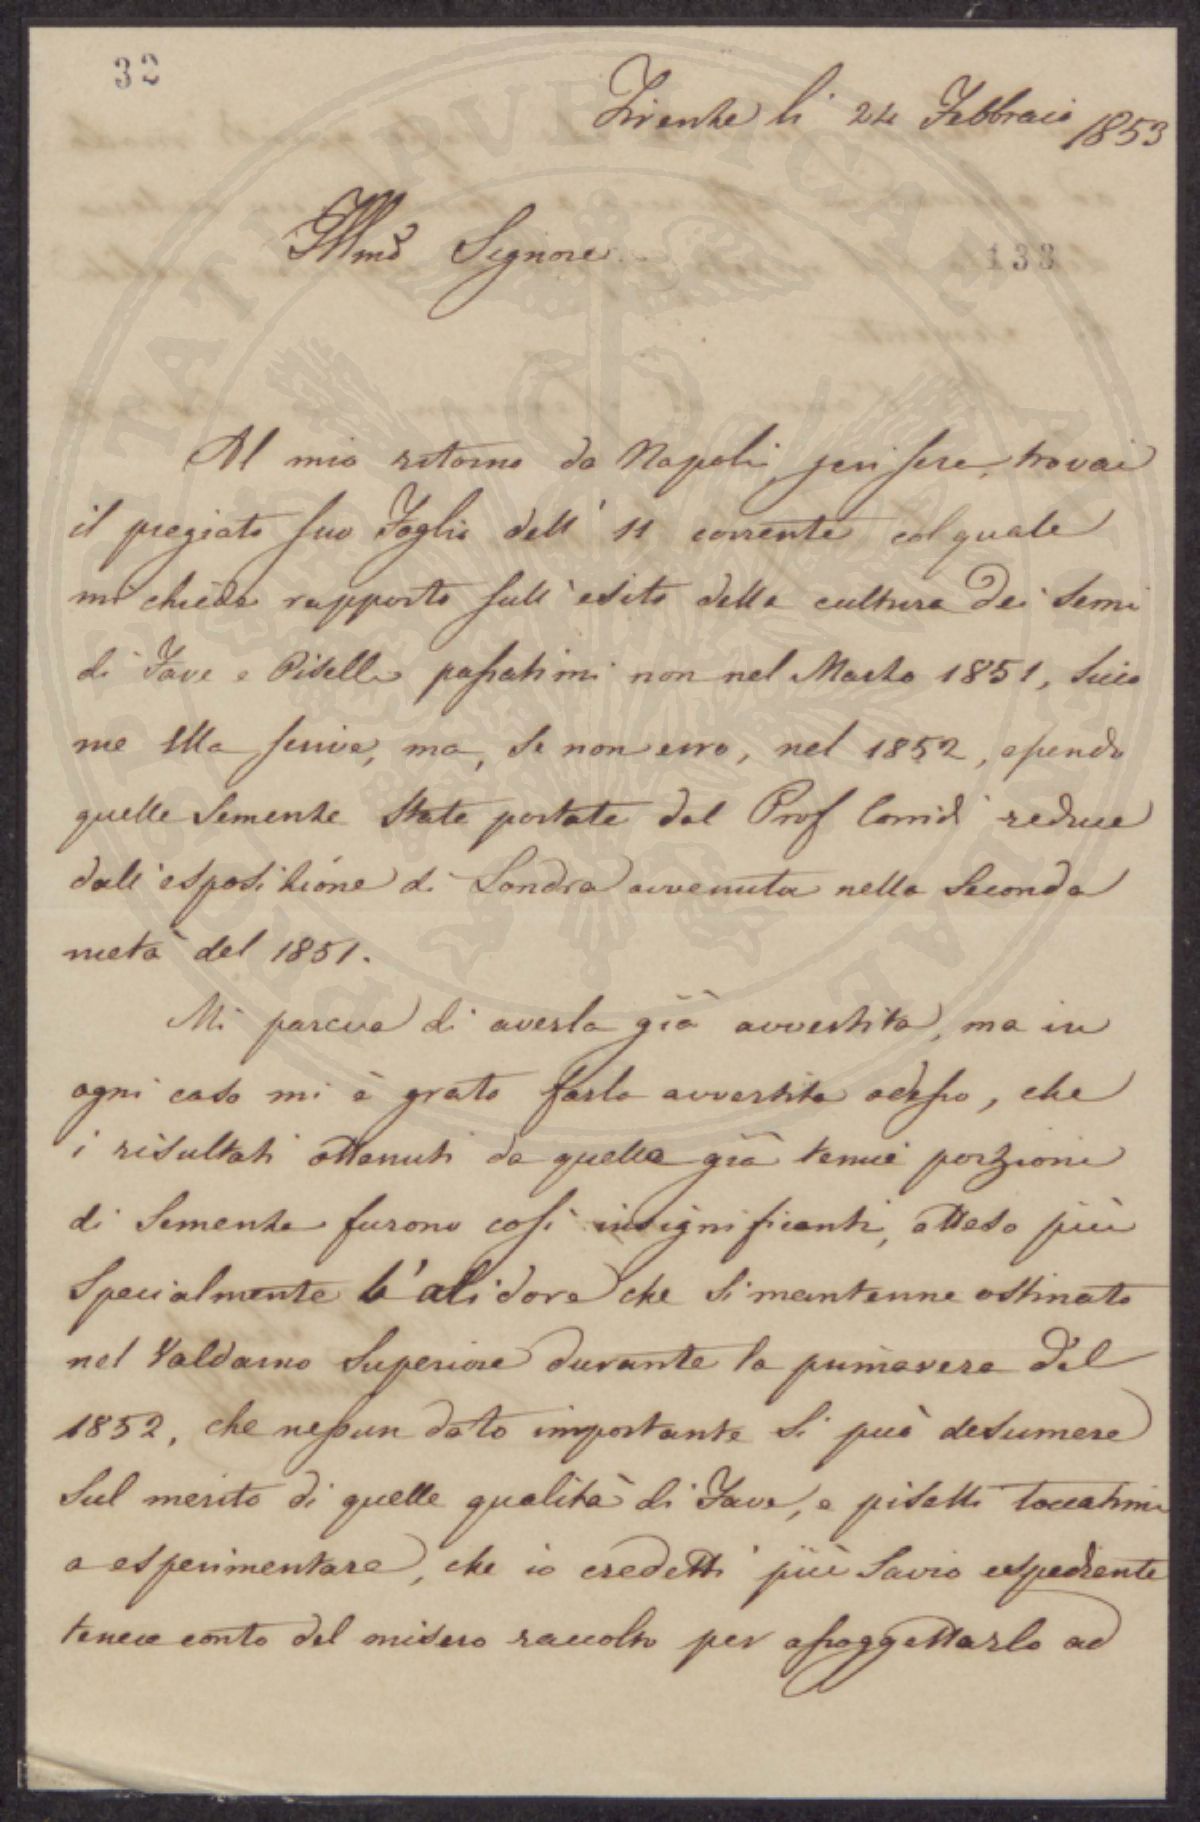 32
Firenze li 24 Febbraio 1853
Illmo Signore
133
Al mio ritorno da Napoli, jeri sera, trovai
il pregiato suo Foglio dell' 11 corrente col quale
mi chiede rapporto sull'esito della cultura dei semi
di Fave e Piselli passatimi non nel Marzo 1851, sicco
me Ella scrive, ma, se non erro, nel 1852, essendo
quelle semente state portate dal Prof Corridi reduce
dall'esposizione di Londra avvenuta nella seconda
metà del 1851.
Mi pareva di averla già avvertita, ma in
ogni caso mi è grato farla avvertita adesso, che
i risultati ottenuti da quelle già tenui porzioni
di Semente furono così insignificanti, atteso più
specialmente l'alidore che si mantenne ostinato
nel Valdarno Superiore durante la primavera del
1852, che nessun dato importante si può desumere
sul merito di quelle qualità di Fave, e piselli toccatimi
a esperimentare, che io credetti più savio espediente
tener conto del misero raccolto per assoggettarlo ad
PROSPERITATI PUBLICAE AUGENDAE